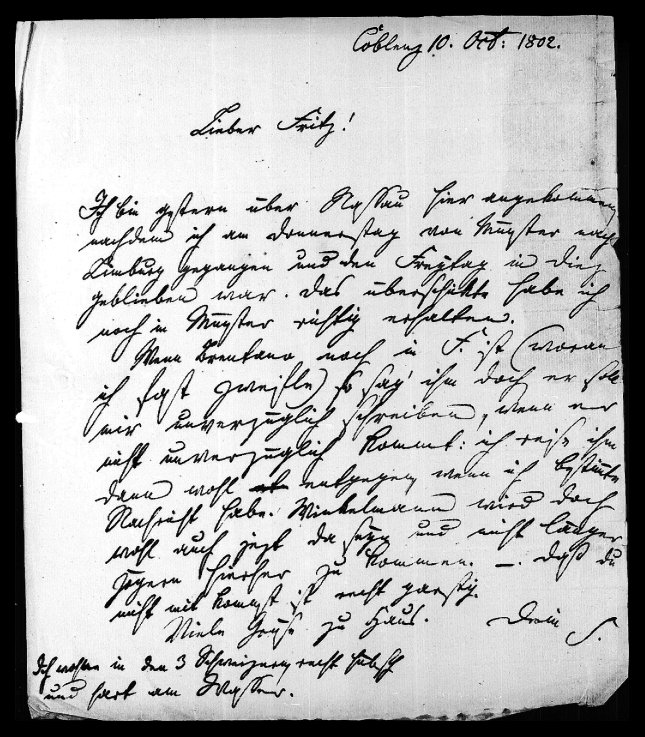 Coblenz 10. Oct: 1802.
Lieber Fritz!
Ich bin gestern über Nassau hier angekommen,
nachdem ich am Donnerstag von Münster nach
Limburg gegangen und den Freytag in Diez
geblieben war. das überschickte habe ich
noch in Münster richtig erhalten.
Wenn Brentano noch in F. ist (woran
ich fast zweifle) so sag' ihm doch er soll
mir unverzüglich schreiben, wenn er
nicht unverzüglich kommt: ich reise ihm
dann wohl entgegen, wenn ich bestimmte
Nachricht habe. Winkelmann wird doch
wohl auch jezt da seyn und nicht länger
zögern hierher zu kommen. –. daß du
nicht mit kommst ist recht garstig.
Viele Grüße zu Haus. Dein S.
Ich wohne in den 3 Schweizern, recht hübsch
und hart am Wasser.